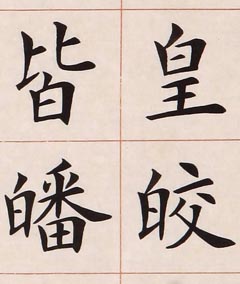 皇皎
皆皤